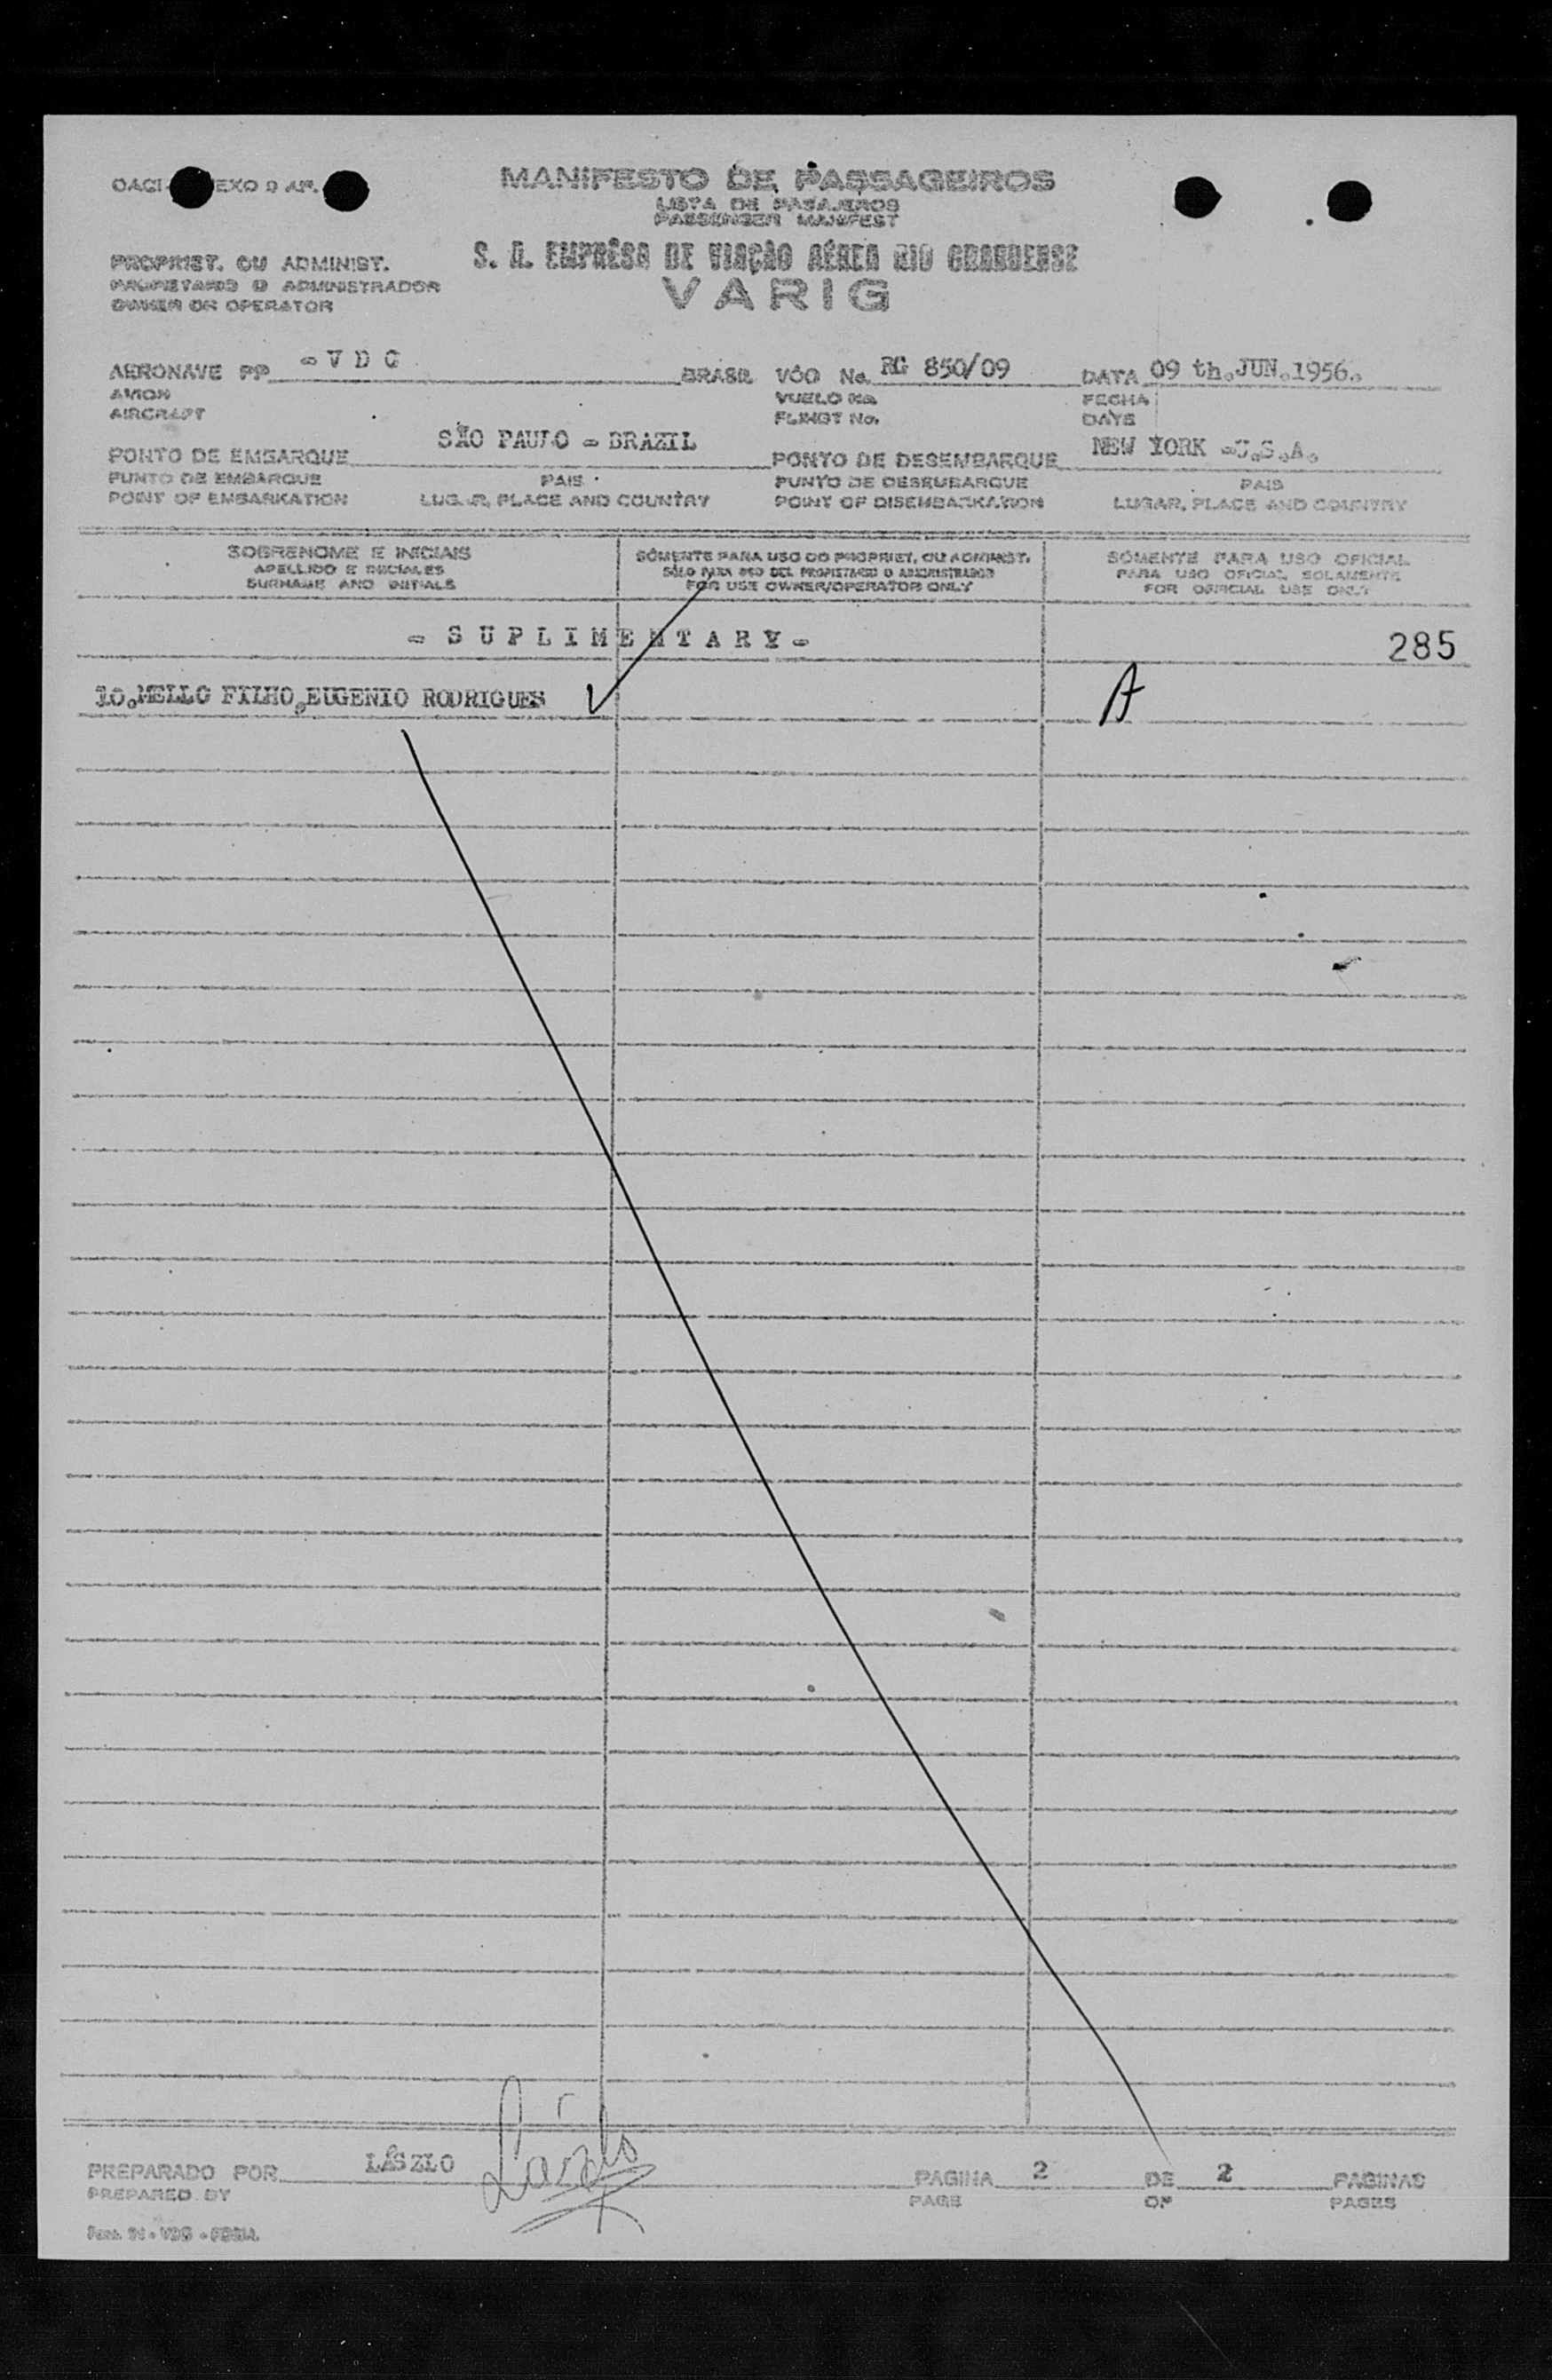 OACI EXO 9 AP.
MANIFESTO DE PASSAGEIROS
LISTA DE PASAJEROS
PASSENGER MANIFEST
S. A. EMPRÊSA DE VIAÇÃO AÉREA RIO GRANDENSE
VARIG
PROPRIET. OU ADMINIST.
PROPIETARIO O ADMINISTRADOR
OWNER OR OPERATOR
AERONAVE PP -VDC BRASIL VÔO No. RG 850/09 DATA 09 th.JUN.1956.
AVION VUELO No. FECHA
AIRCRAFT FLINGT No. DATE
PONTO DE EMBARQUE SÃO PAULO - BRAZIL PONTO DE DESEMBARQUE NEW YORK -U.S.A.
PUNTO DE EMBARQUE PAIS PUNTO DE DESEMBARQUE PAIS
POINT OF EMBARKATION LUGAR, PLACE AND COUNTRY POINT OF DISEMBARKATION LUGAR, PLACE AND COUNTRY
SOBRENOME E INICIAIS SÓMENTE PARA USO DO PROPRIET, OU ADMINIST. SÓMENTE PARA USO OFICIAL
APELLIDO E INICIALES SÓLO PARA USO DEL PROPIETARIO O ADMINISTRADOR PARA USO OFICIAL SOLAMENTE
SURNAME AND INITIALS FOR USE OWNER/OPERATOR ONLY FOR OFFICIAL USE ONLY
- SUPLIMENTARY- 285
10.MELLO FILHO,EUGENIO RODRIGUES A
PREPARADO POR LÁSZLO László PAGINA 2 DE 2 PAGINAS
PREPARED BY PAGE OF PAGES